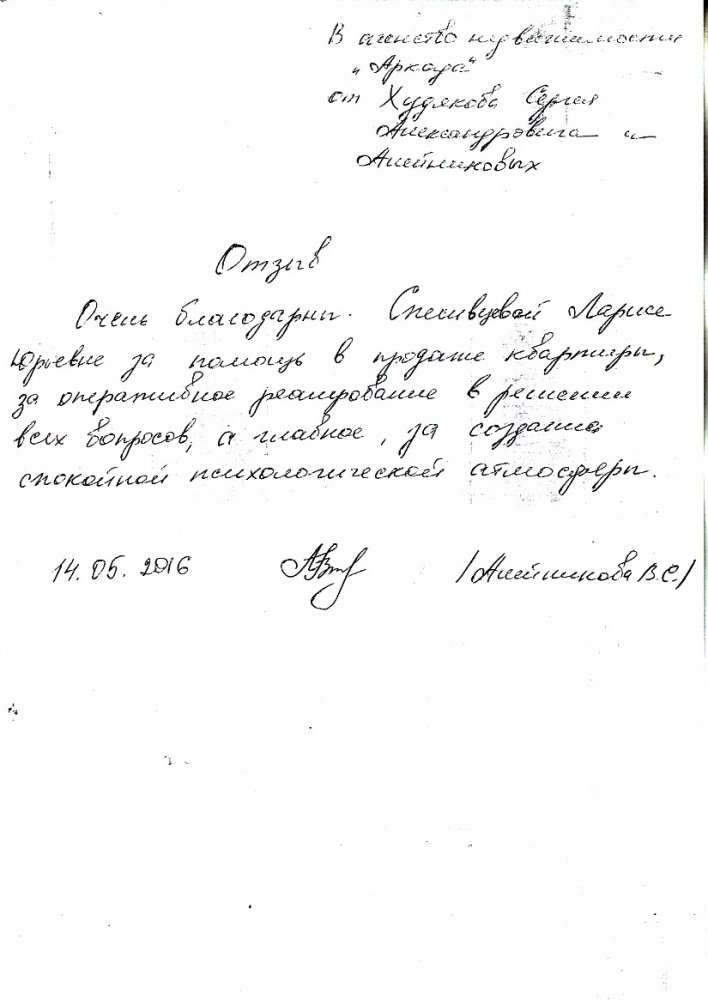 В агенство недвижимости
„Аркада"
от Худякова Сергея
Александровича и
Алейниковых
Отзыв
Очень благодарны. Спесивцевой Ларисе
Юрьевне за помощь в продаже квартиры,
за оперативное реагирование в решении
всех вопросов, а главное, за создание
спокойной психологической атмосферы.
14.05.2016 /Алейникова В.С./